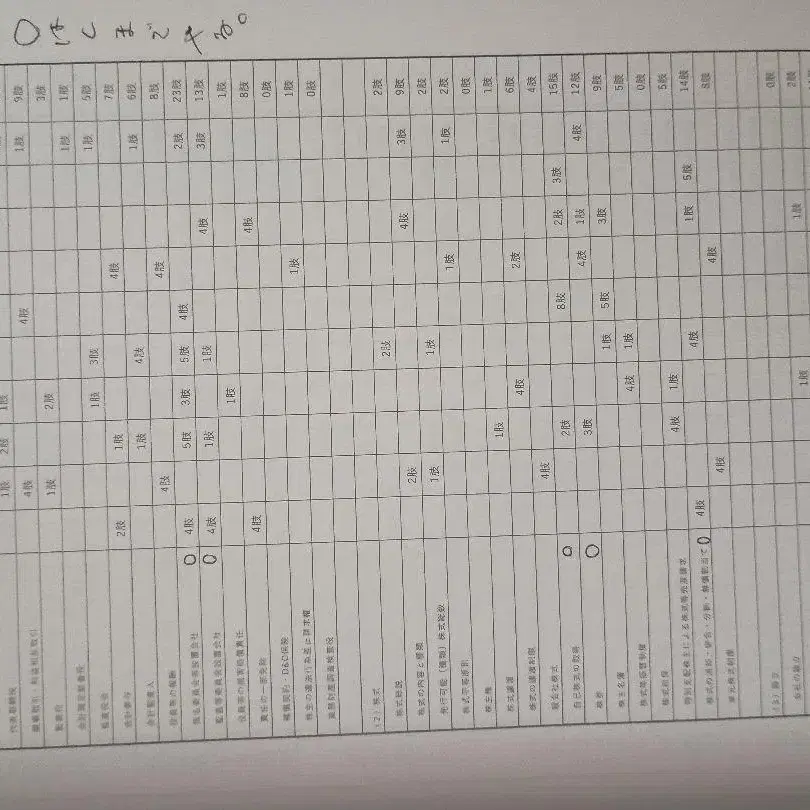 代表取締役 1肢 2肢 1肢
競業取引・利益相反取引 4肢 4肢 1肢 9肢
監査役 1肢 2肢 3肢
会計限定監査役 1肢 1肢
監査役会 1肢 3肢 1肢 5肢
会計参与 2肢 1肢 4肢 7肢
会計監査人 1肢 4肢 1肢 6肢
役員等の報酬 4肢 4肢 8肢
指名委員会等設置会社 ○ 4肢 5肢 3肢 5肢 4肢 2肢 23肢
監査等委員会設置会社 ○ 4肢 1肢 1肢 4肢 3肢 13肢
役員等の損害賠償責任 1肢 1肢
責任の一部免除 4肢 4肢 8肢
補償契約・D&O保険 0肢
株主の違法行為差止請求権 1肢 1肢
業務財産調査検査役 0肢
(2)株式
株式総説 2肢 2肢
株式の内容と種類 2肢 4肢 3肢 9肢
発行可能(種類)株式総数 1肢 1肢 2肢
株式平等原則 1肢 1肢 2肢
株主権 0肢
株式譲渡 1肢 1肢
株式の譲渡制限 4肢 2肢 6肢
親会社株式 4肢 4肢
自己株式の取得 ○ 2肢 8肢 2肢 3肢 15肢
株券 ○ 3肢 4肢 1肢 4肢 12肢
株主名簿 1肢 5肢 3肢 9肢
株式等振替制度 4肢 1肢 5肢
株式担保 0肢
特別支配株主による株式等売渡請求 4肢 1肢 5肢
株式の消却・併合・分割・無償割当て ○ 4肢 4肢 1肢 5肢 14肢
単元株式制度 4肢 4肢 8肢
(3)設立 0肢
1肢 1肢 2肢